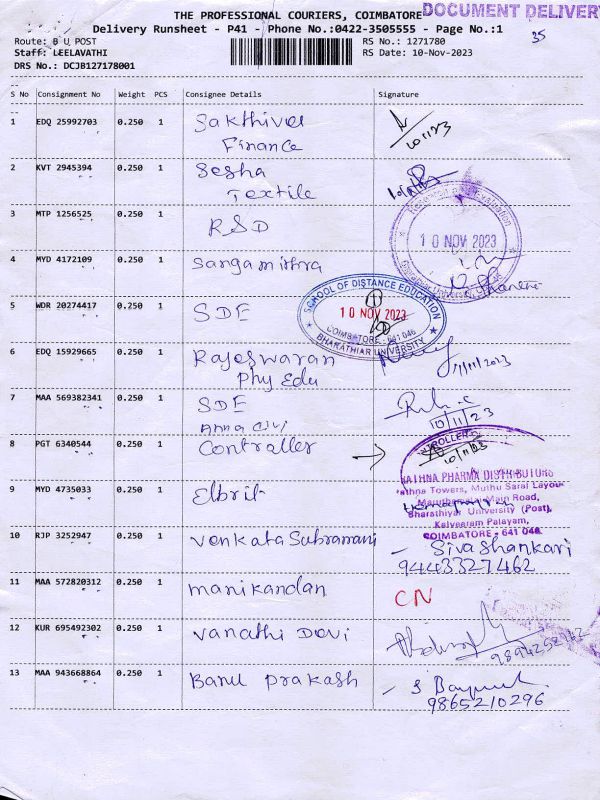 THE PROFESSIONAL COURIERS, COIMBATORE
DOCUMENT DELIVERY
Delivery Runsheet - P41 - Phone No.:0422-3505555 - Page No.:1
35
Route: B U POST
RS No.: 1271780
Staff: LEELAVATHI
RS Date: 10-Nov-2023
DRS No.: DCJB127178001
S No Consignment No Weight PCS Consignee Details Signature
1 EDQ 25992703 0.250 1 Sakthivel
Finance
10/11/23
2 KVT 2945394 0.250 1 Sesha
Textile
3 MTP 1256525 0.250 1 RSD
10 NOV 2023
4 MYD 4172109 0.250 1 Sangamithra
5 WDR 20274417 0.250 1 SDE
SCHOOL OF DISTANCE EDUCATION
10 NOV 2023
COIMBATORE - 641 046
BHARATHIAR UNIVERSITY
6 EDQ 15929665 0.250 1 Rajeswaran
Phy Edu
7 MAA 569382341 0.250 1 SDE
10/11/23
Anna Civi
8 PGT 6340544 0.250 1 Contraller
10/11/23
RATHNA PHARMA DISTRIBUTORS
Rathna Towers, Muthu Sarai Layout
Maruthamalai Main Road,
Bharathiyar University (Post),
Kalveeram Palayam,
COIMBATORE - 641 046
9 MYD 4735033 0.250 1 Elbrit
10 RJP 3252947 0.250 1 Venkata Subramani
- Sivashankari
9443327462
11 MAA 572820312 0.250 1 Manikandan
CN
12 KUR 695492302 0.250 1 Vanathi Devi
9894252162
13 MAA 943668864 0.250 1 Banu Prakash
9865210296